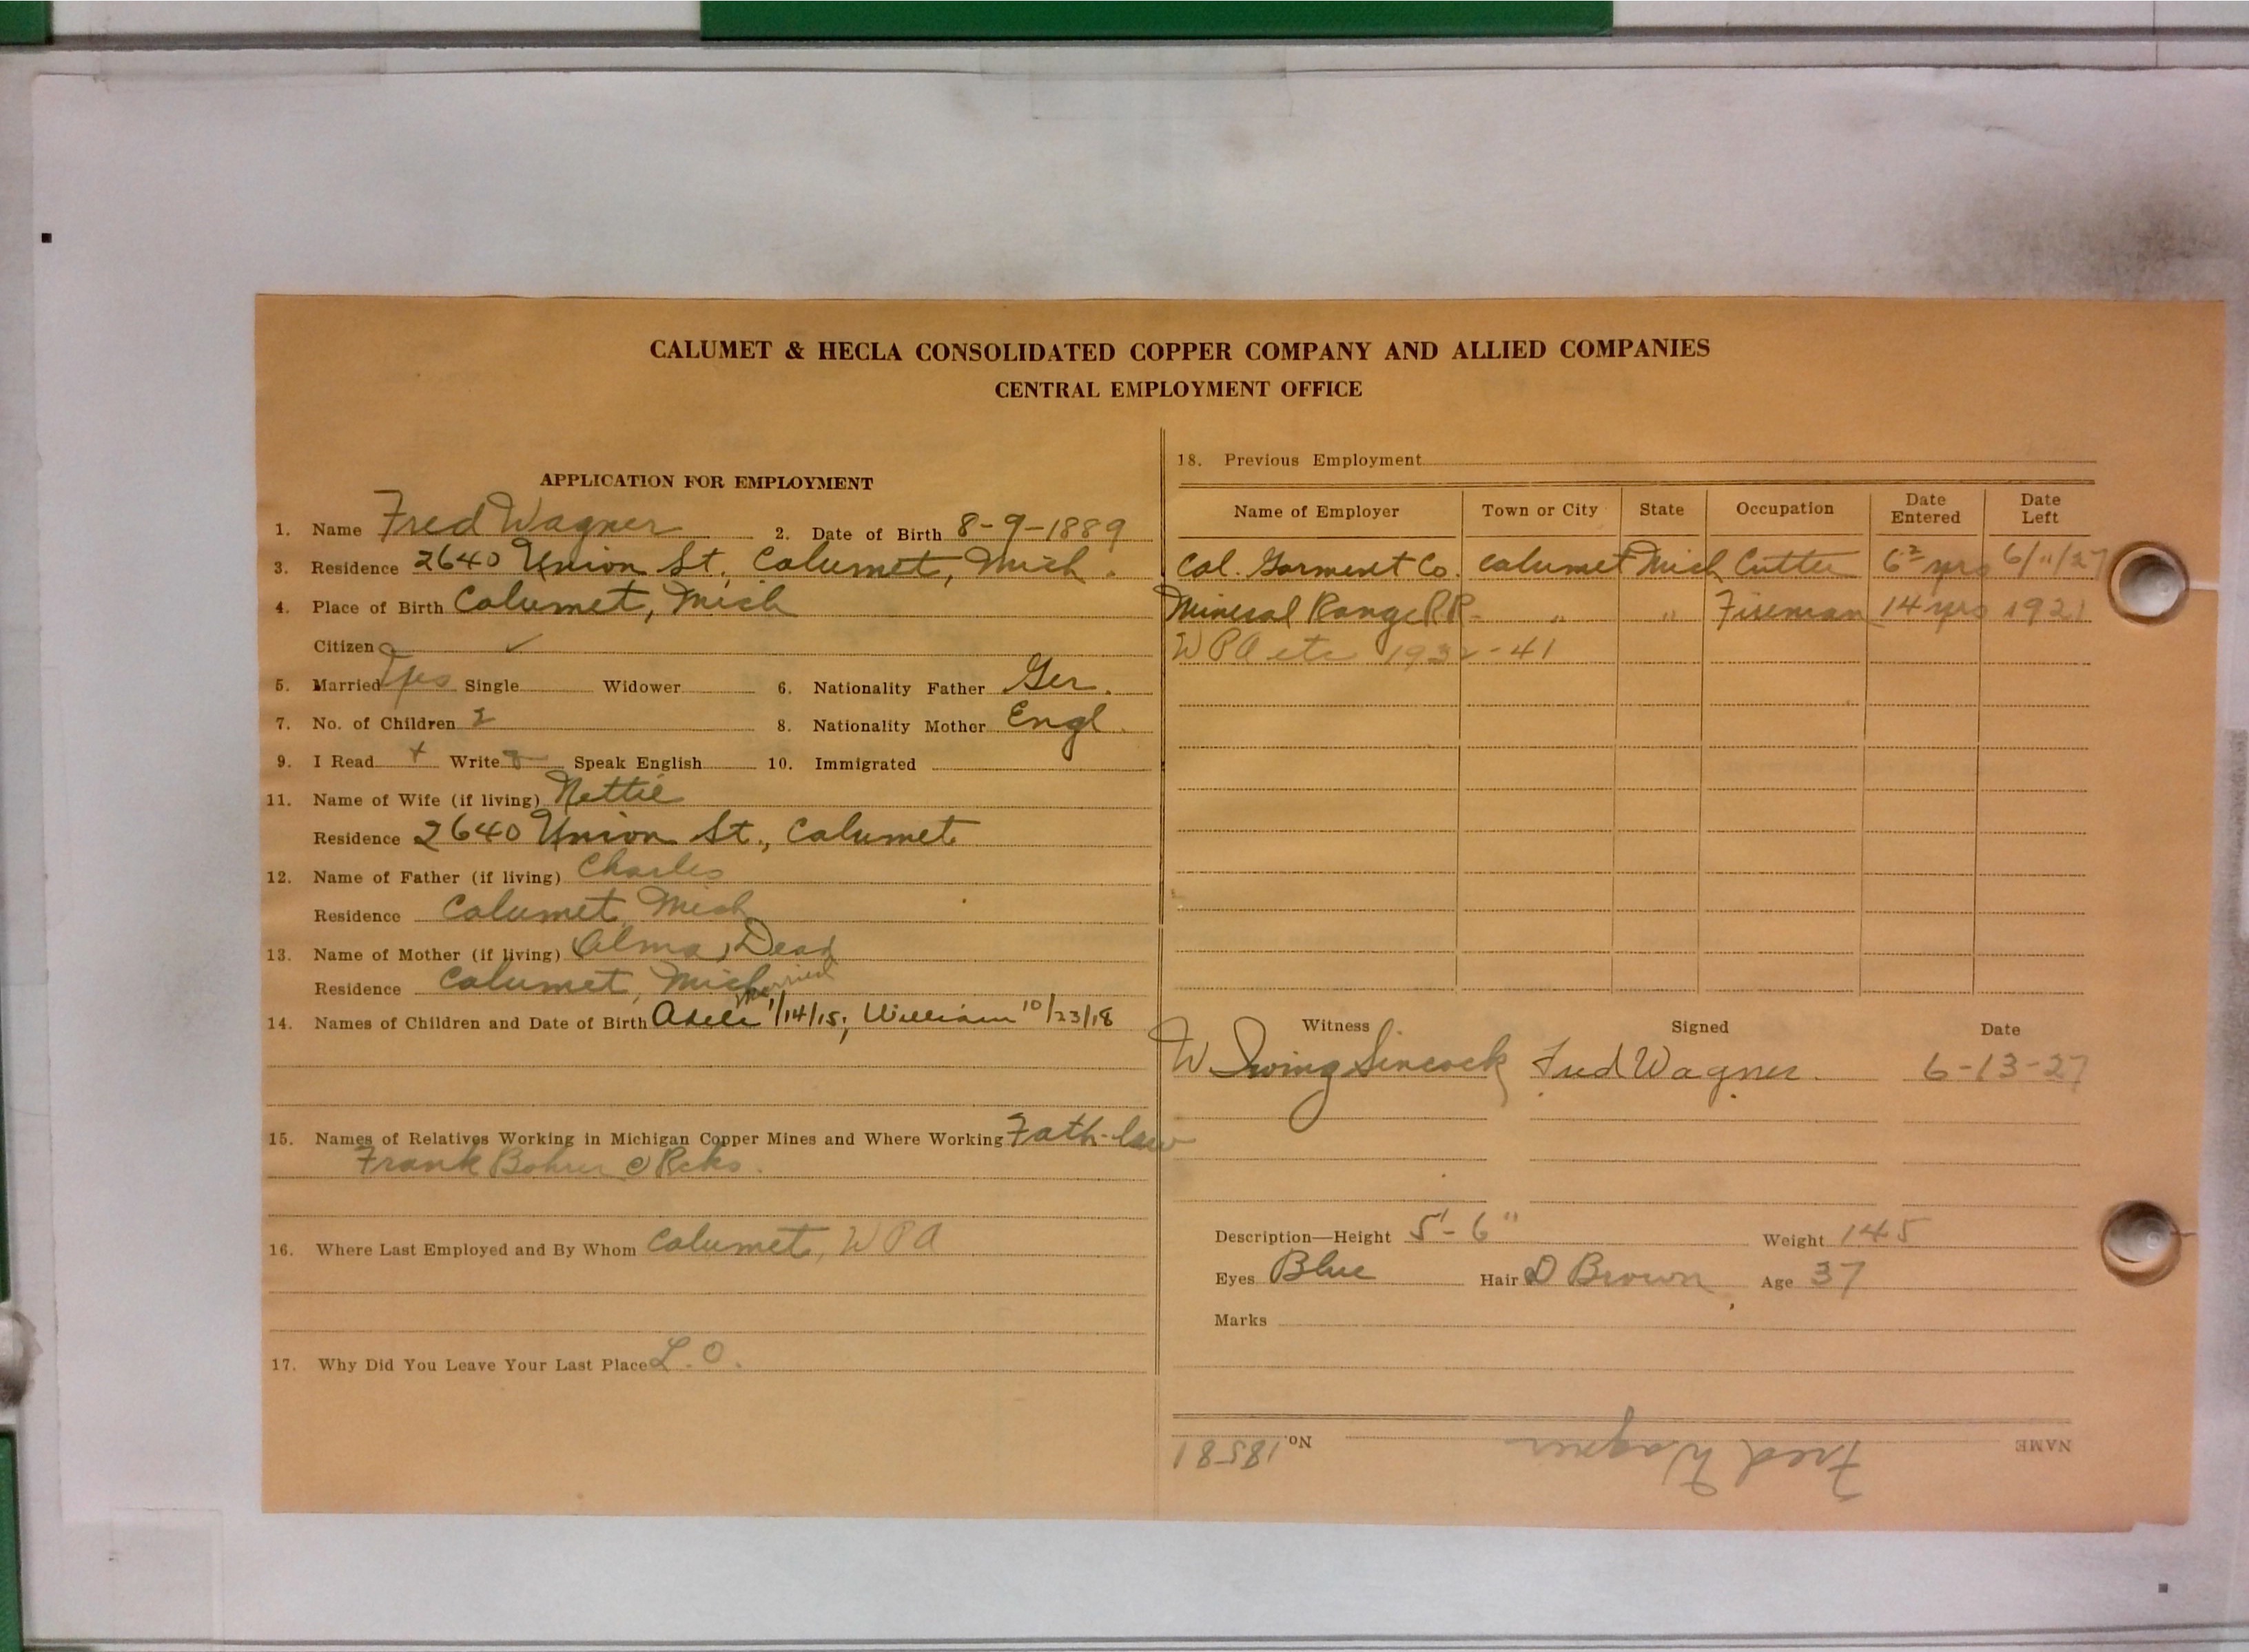 CALUMET & HECLA CONSOLIDATED COPPER COMPANY AND ALLIED COMPANIES
CENTRAL EMPLOYMENT OFFICE
APPLICATION FOR EMPLOYMENT
1. Name Fred Wagner 2. Date of Birth 8-9-1889
3. Residence 2640 Union St, Calumet, Mich.
4. Place of Birth Calumet, Mich
Citizen ✓
5. Married Yes Single Widower 6. Nationality Father Ger.
7. No. of Children 2 8. Nationality Mother Engl.
9. I Read + Write Speak English 10. Immigrated
11. Name of Wife (if living) Nettie
Residence 2640 Union St., Calumet
12. Name of Father (if living) Charles
Residence Calumet, Mich
13. Name of Mother (if living) Alma, Dead
Residence Calumet, Mich
married
14. Names of Children and Date of Birth 1/14/15; William 10/23/18
15. Names of Relatives Working in Michigan Copper Mines and Where Working Fath-law
Frank
16. Where Last Employed and By Whom Calumet, WPA
17. Why Did You Leave Your Last Place L.O.
18. Previous Employment
Name of Employer Town or City State Occupation Date Entered Date Left
Col. Garment Co. Calumet Mich Cutter 6² yrs 6/11/27
Mineral Range RR. " " Fireman 14 yrs 1921
WPA etc 1932-41
Witness Signed Date
W. Irving Sincock Fred Wagner. 6-13-27
Description—Height 5'-6" Weight 145
Eyes Blue Hair D Brown Age 37
Marks
NAME Fred Wagner No. 18581